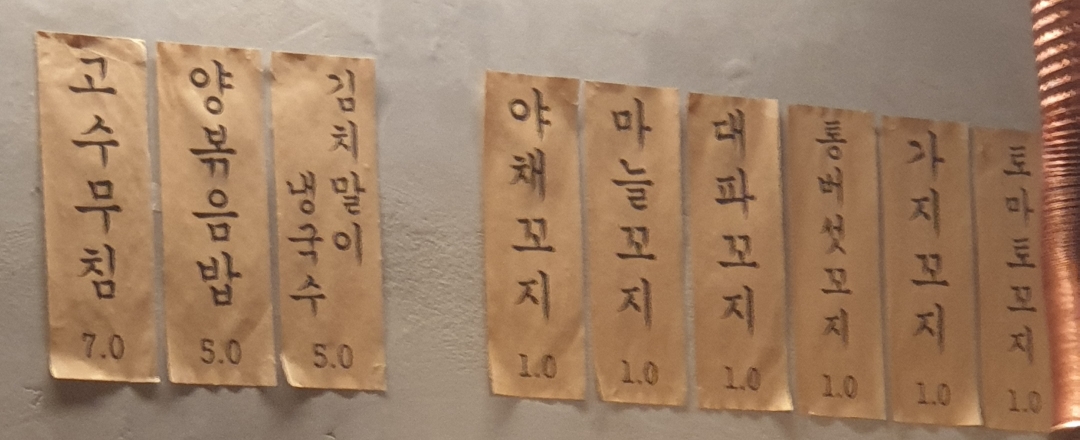 고수무침 7.0
양볶음밥 5.0
김치말이
냉국수 5.0
야채꼬지 1.0
마늘꼬지 1.0
대파꼬지 1.0
통버섯꼬지 1.0
가지꼬지 1.0
토마토꼬지 1.0